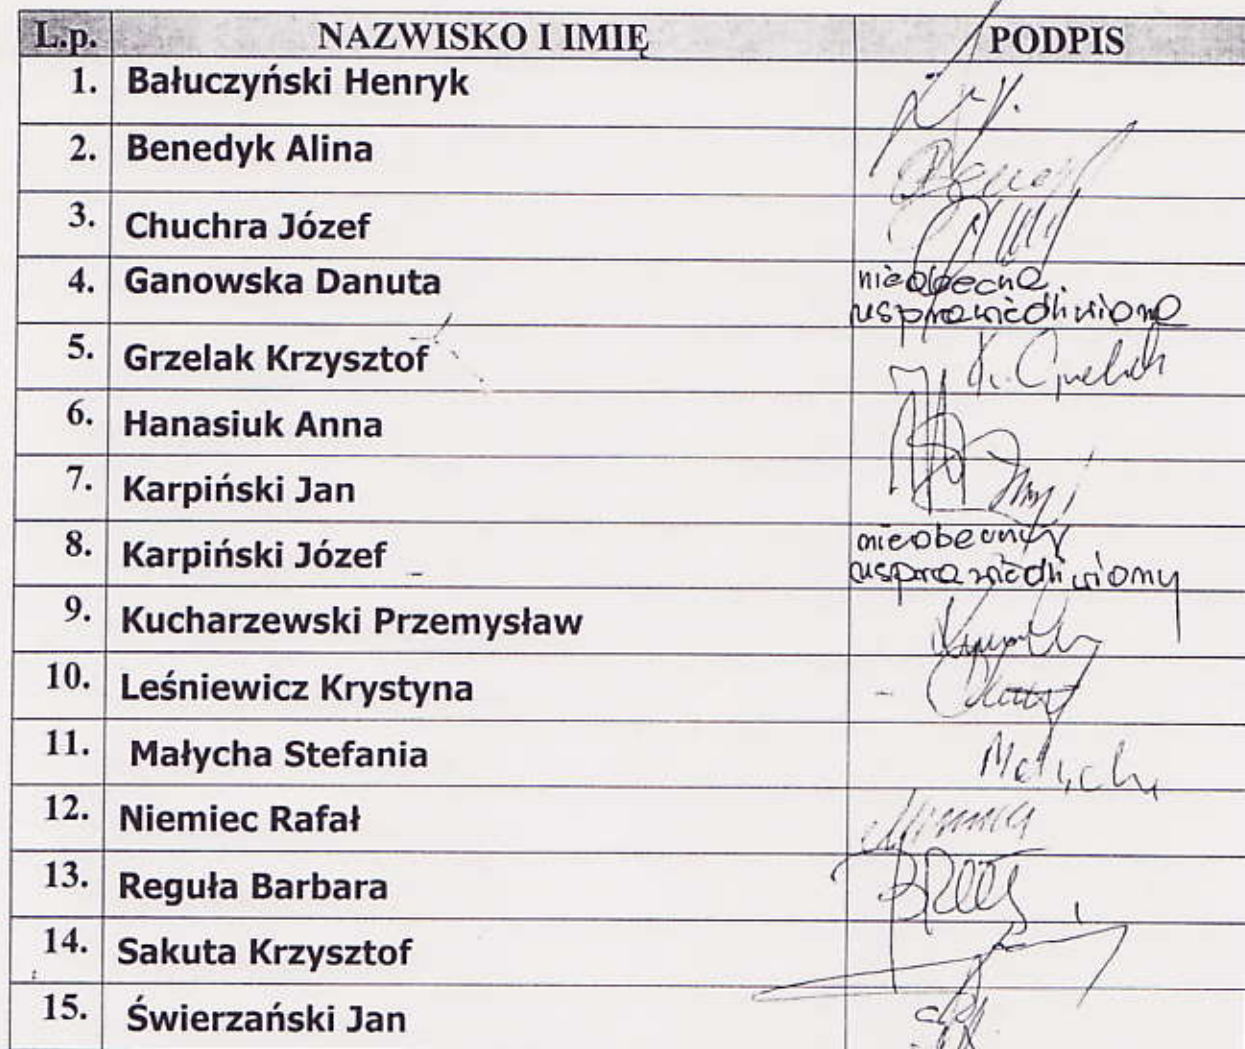 L.p. NAZWISKO I IMIĘ PODPIS
1. Bałuczyński Henryk
2. Benedyk Alina
3. Chuchra Józef
4. Ganowska Danuta nieobecna
usprawiedliwiona
5. Grzelak Krzysztof K. Grzelak
6. Hanasiuk Anna
7. Karpiński Jan
8. Karpiński Józef nieobecny
usprawiedliwiony
9. Kucharzewski Przemysław
10. Leśniewicz Krystyna
11. Małycha Stefania Małycha
12. Niemiec Rafał
13. Reguła Barbara
14. Sakuta Krzysztof
15. Świerzański Jan